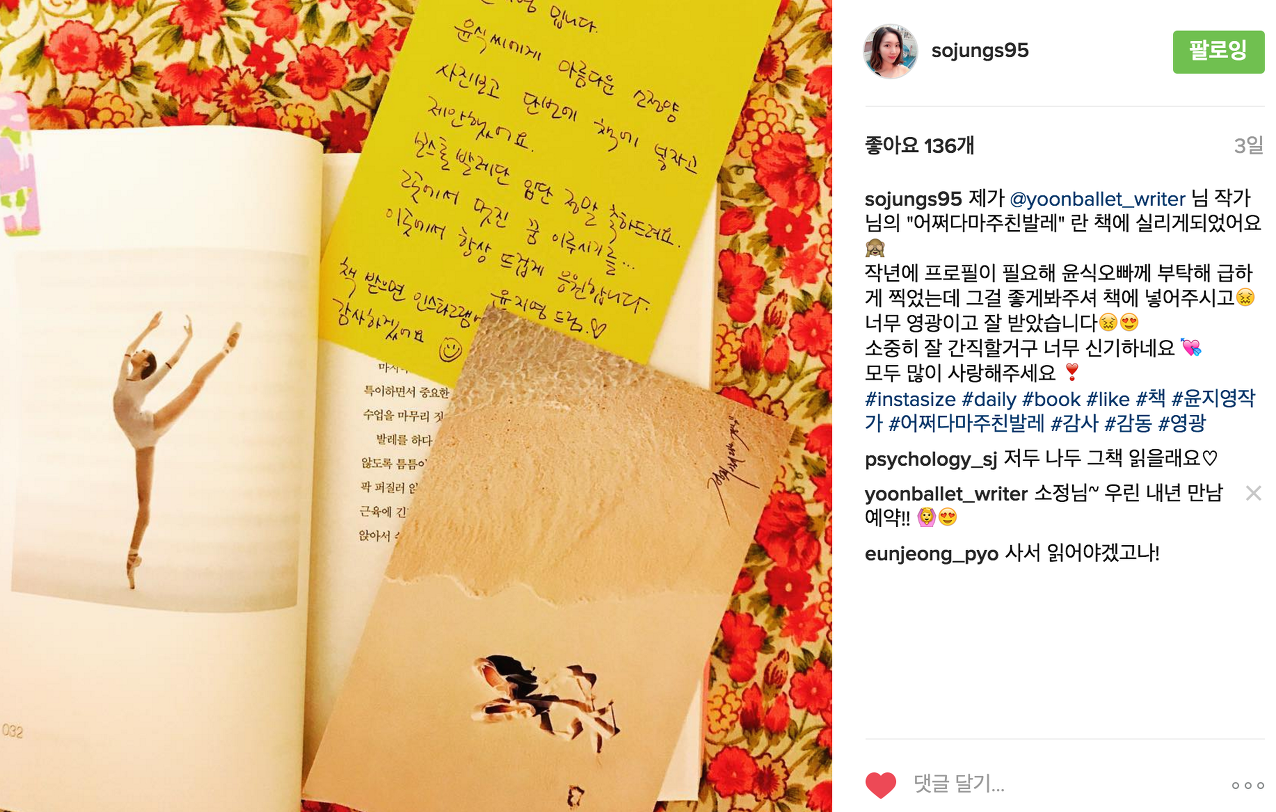 밉니다.
윤식씨에게 아름다운 소정양
사진보고 단번에 책에 넣자고
제안했어요.
보스톨 발레단 입단 정말 축하드려요.
그곳에서 멋진 꿈 이루시기를...
이곳에서 항상 뜨겁게 응원합니다.
윤지영 드림.♡
책 받으면 인스타그램에
감사하겠어요 ☺
특이하면서 중요한
수업을 마무리 짓
발레를 하다
않도록 틈틈이
팍 퍼질러 앉
근육에 긴
앉아서
032
sojungs95
팔로잉
좋아요 136개
3일
sojungs95 제가 @yoonballet_writer 님 작가
님의 "어쩌다마주친발레" 란 책에 실리게되었어요
🙈
작년에 프로필이 필요해 윤식오빠께 부탁해 급하
게 찍었는데 그걸 좋게봐주셔 책에 넣어주시고😖
너무 영광이고 잘 받았습니다😖😍
소중히 잘 간직할거구 너무 신기하네요 💘
모두 많이 사랑해주세요 ❣️
#instasize #daily #book #like #책 #윤지영작
가 #어쩌다마주친발레 #감사 #감동 #영광
psychology_sj 저두 나두 그책 읽을래요♡
yoonballet_writer 소정님~ 우린 내년 만남
예약!! 🙆😍
eunjeong_pyo 사서 읽어야겠고나!
댓글 달기...